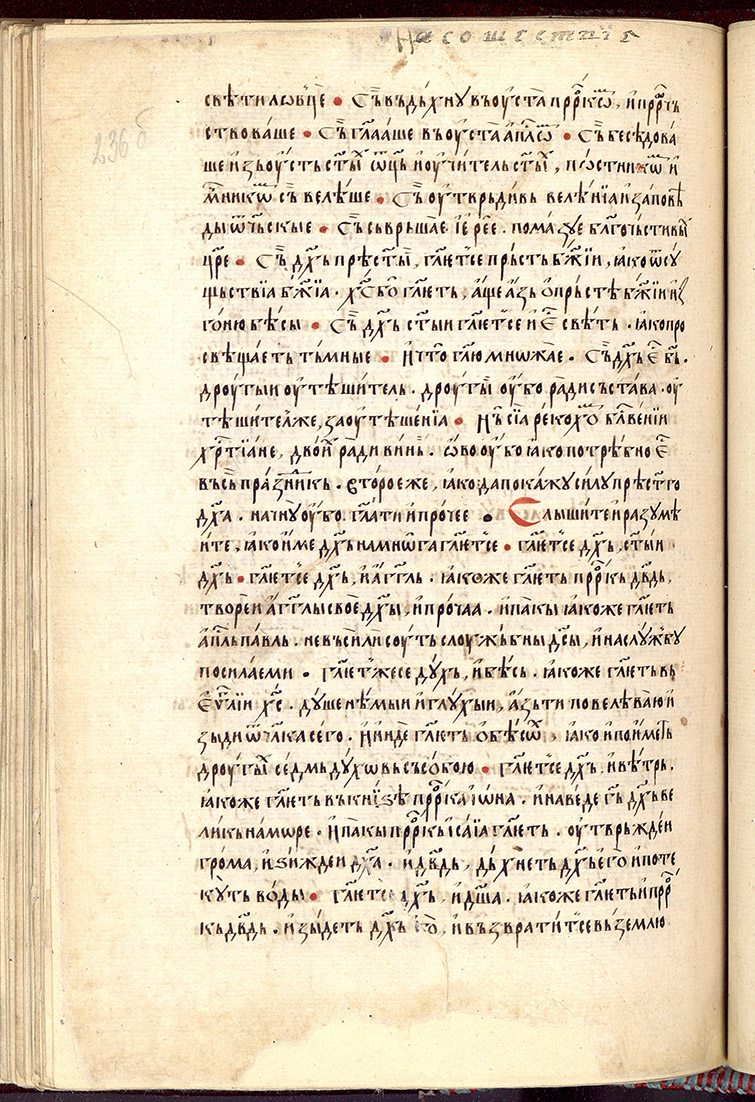 На сошествїе
236 б
свѣтиловц҃е • Съ въдъхну въ оуста прⷪ҇ркѡⷨ, и прⷪ҇рчь
ство ваше • Съ гл҃ааше въ оуста апⷭ҇лѡⷨ • Съ бесѣдова
ше изь оусть ст҃ыⷯ ѡ҃ць и оучитель ст҃ыⷯ, постникѡⷨ и
мн҃икѡⷨ съ велѣше • Съ оутврьдивь велѣнїа и заповѣ
ды ѡ҃чьскые • Съ сьврьшае їерее. помазуе бл҃гочьстивыⷯ
цр҃е • Съ дх҃ъ прѣст҃ыи, гл҃ѥтсе прьсть бж҃їи, іако ѿ су
щьствїа бж҃їа. хⷭ҇ бо гл҃ѥть, аще азь о прьстѣ бж҃їи из
гоню бѣсы • Съ дх҃ъ ст҃ыи гл҃ѥтсе и еⷭ҇ свѣть. іако про
свѣщаеть тьмные • и что гл҃ю мнѡжае. Съ дх҃ъ еⷭ҇ бь҃.
дроугыи оутѣшитель. дроугыи оубо ради състава. оу
тѣшител же, за оутѣшенїа • Нн҃ѣ сїа рекохѡⷨ бл҃гвенїи
хрⷭ҇тїане, двоиⷯ ради винь. ѡво оубо іако потрѣбно еⷭ҇
въ съ праⷥдникь. второе же, іако да покажу силу прѣст҃го
дх҃а. начну оубо гл҃ати и прочее • Слышите и разумѣ
ите, іако име дх҃ъ на мнѡга гл҃ѥтсе • гл҃ѥтсе дх҃ъ, ст҃ыи
дх҃ъ • гл҃ѥтсе дх҃ъ, и агг҃ль. іакоже гл҃ѥть прⷪ҇ркь дв҃дь,
твореи агг҃лы свое дх҃ы, и прочаа. и пакы іакоже гл҃ѥть
апⷭ҇ль павль. не въси ли соуть слоужьбны дс҃ы, и на службу
посилаеми • гл҃ѥтже се духь, и бѣсь. іакоже гл҃ѥть въ
еѵⷢ҇лїи хⷭ҇. душе нѣмыи и глухыи, азь ти повелѣваю и
зыди ѿ чл҃ка сего. и инде гл҃ѥть о бѣсѡⷯ, іако и поиметь
дроугыⷯ седмь духовь съ собою • гл҃ѥтсе дх҃ъ, и вѣтрь.
іакоже гл҃ѥть въ книѕѣ прⷪ҇рка іѡна. и наведе гь҃ дх҃ъ ве
ликь на море. и пакы прⷪ҇ркь ісаїа гл҃ѥть. оутврьждеи
грома, и зиждеи дх҃а. и дв҃дь, дьхнеть дх҃ъ его и поте
куть воды • гл҃ѥтсе дх҃ъ, и дш҃а. іакоже гл҃ѥть и прⷪ҇р
кь дв҃дь. изыдеть дх҃ъ его, и възвратитсе вь землю